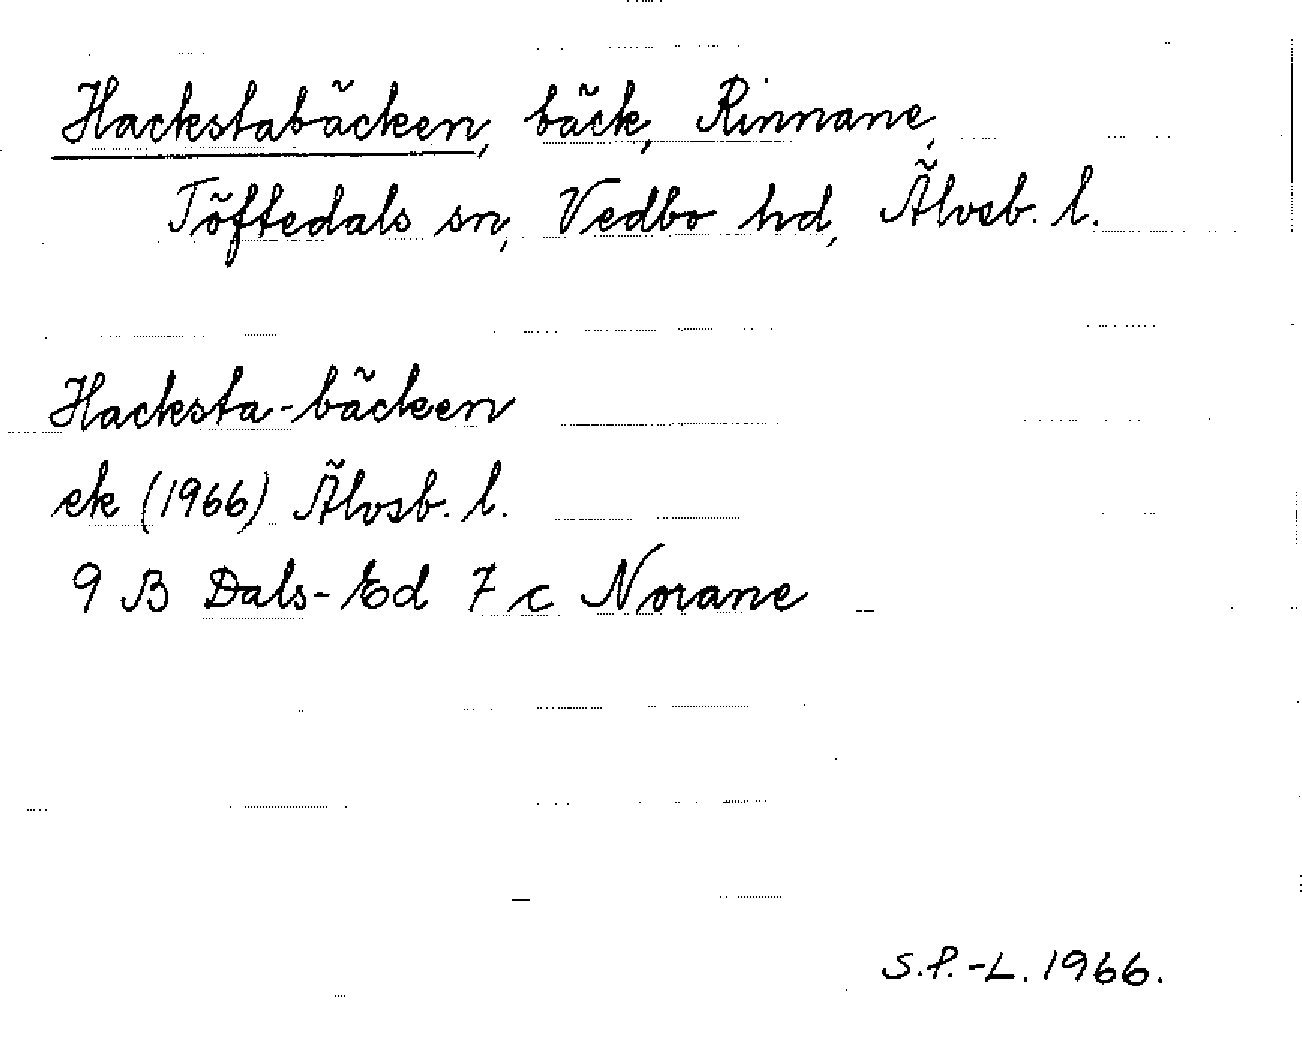 Hackstabäcken, bäck, Rinnane,
Töftedals sn, Vedbo hd, Älvsb. l.
Hacksta-bäcken
ek (1966) Älvsb. l.
9 B Dals-Ed 7 c Norane
S.P.-L. 1966.